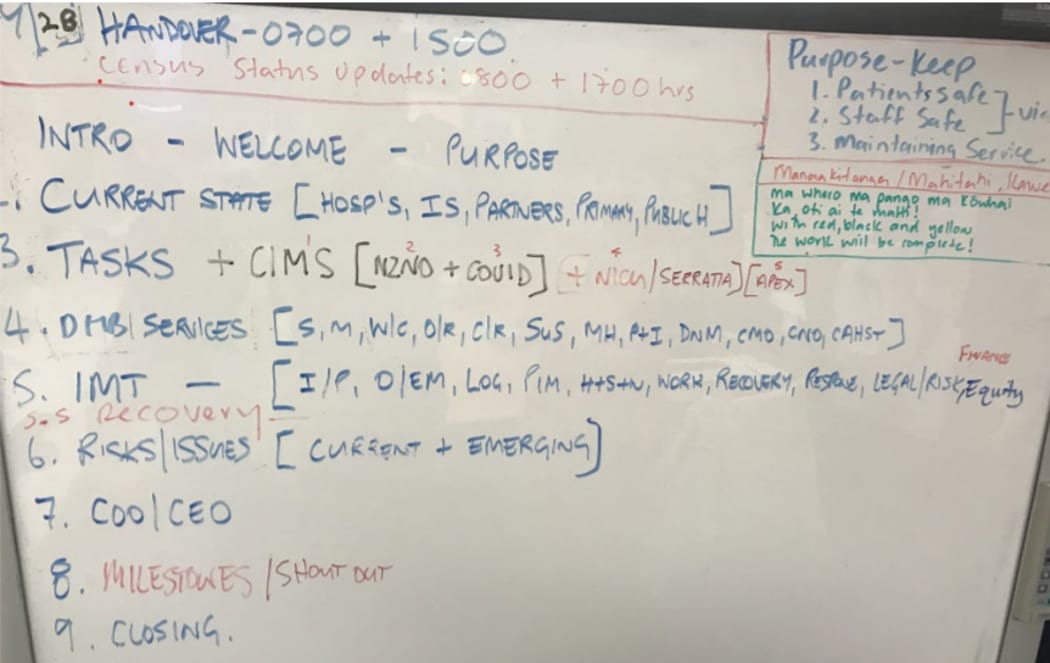 28 HANDOVER - 0700 + 1500
census status updates: 0800 + 1700 hrs
Purpose - Keep
1. Patients safe
2. Staff safe
3. Maintaining Service.
Manaakitanga / Mahitahi,
ma whero ma pango ma kōwhai
ka oti ai te mahi!
with red, black and yellow
the work will be complete!
INTRO - WELCOME - PURPOSE
CURRENT STATE [HOSP'S, IS, PARTNERS, PRIMARY, PUBLIC H]
3. TASKS + CIM'S [NZNO + COVID] + NICU/SERRATIA][APEX]
1 2 3 4 5
4. DHB/SERVICES [S, M, W/C, O/R, C/R, SuS, MH, P+I, DNM, CMO, CNO, CAHST]
FINANCE
5. IMT - [I/P, O/EM, LOG, PIM, H+S+W, WORK, RECOVERY, LEGAL/RISK, Equity
5.5 RECOVERY
6. RISKS/ISSUES [CURRENT + EMERGING]
7. COO/CEO
8. MILESTONES/SHOUT OUT
9. CLOSING.